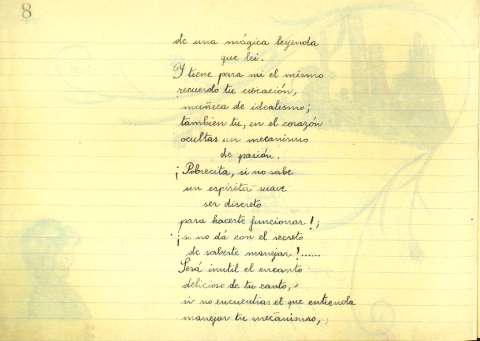 8
de una mágica leyenda
que leí.
Y tiene para mí el mismo
recuerdo tu evocación,
muñeca de idealismo;
también tu, en el corazón
ocultas un mecanismo
de pasión.
¡Pobrecita, si no sabe
un espíritu suave
ser discreto
para hacerte funcionar!;
¡si no dá con el secreto
de saberte manejar!......
Será inutil el encanto
delicioso de tu canto,
si no encuentras el que entienda
manejar tu mecanismo,